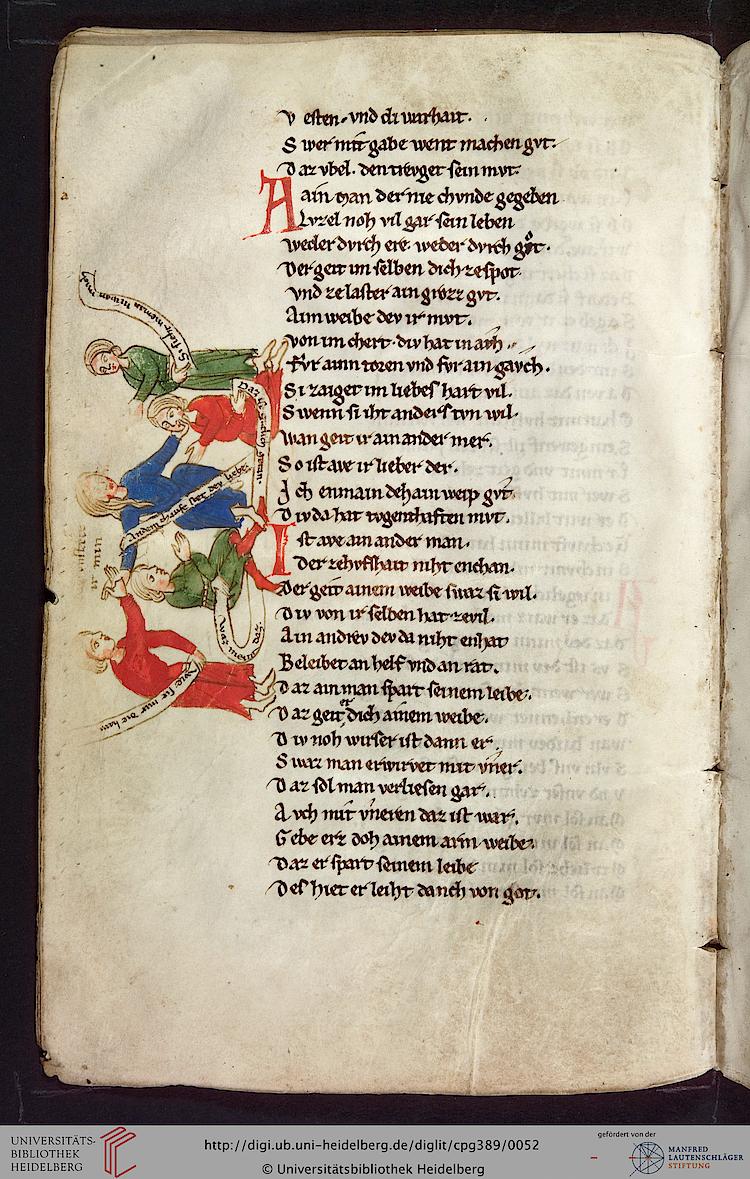 V esten. vnd di warhait.
S wer mit gabe went machen gvt.
D az vbel. den trevget sein mvt.
A ain man der nie chvnde gegeben
Lvzel noh vil gar sein leben
weder dvrch ere. weder dvrch got.
Der geit im selben dich ze spot.
vnd ze laster ain grozz gvt.
Aim weibe dev ir mvt.
von im chert. div hat in
Fvr ainn tozen vnd fvr ain gavch.
Si zaiget im liebes hart vil.
S wenn si iht anders tvn wil.
wan geit ir ain ander mer.
S o ist ave ir lieber der.
I ch enmain dehain weip gvt.
D iv da hat tvgenthaften mvt.
I st ave ain ander man.
der ze hvfshait niht enchan.
Der geit ainem weibe swaz si wil.
D iv von ir selben hat ze vil.
A in andrev dev da niht enhat
B eleibet an helf vnd an rat.
D az ain man spart seinem leibe.
D az geit er dich ainem weibe.
D iv noh wirser ist dann er.
S waz man erwirvet mit vner.
D az sol man verliesen gar.
A vch mit vneren daz ist war.
G ebe erz doh ainem arm weibe
D az er spart seinem leibe
D es hiet er leiht danch von got.
Si siecht niemen niwan mich
Daz ist
Andem chaufe stet dev liebe
ir min
waz meint daz.
wie sir mir die hant
UNIVERSITÄTS-
BIBLIOTHEK
HEIDELBERG
http://digi.ub.uni-heidelberg.de/diglit/cpg389/0052
© Universitätsbibliothek Heidelberg
gefördert von der
MANFRED
LAUTENSCHLÄGER
STIFTUNG